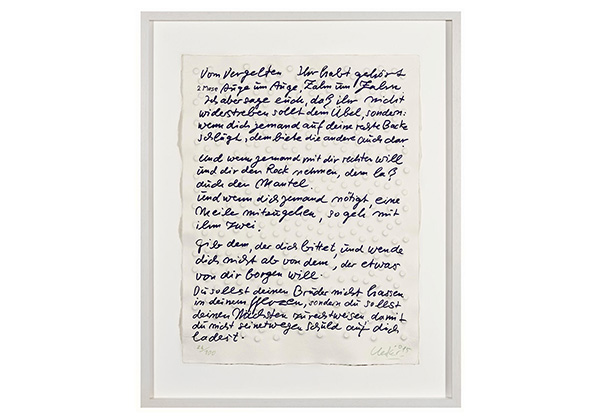 Vom Vergelten Ihr habt gehört
2 Mose Auge um Auge, Zahn um Zahn
Ich aber sage euch, daß ihr nicht
widerstreben sollt dem Übel, sondern:
wenn dich jemand auf deine rechte Backe
schlägt, dem biete die andere auch dar.
Und wenn jemand mit dir rechten will
und dir den Rock nehmen, dem laß
auch den Mantel.
und wenn dich jemand nötigt, eine
Meile mitzugehen, so geh mit
ihm zwei.
Gib dem, der dich bittet, und wende
dich nicht ab von dem, der etwas
von dir borgen will.
Du sollst deinen Bruder nicht hassen
in deinem Herzen, sondern du sollst
deinen Nächsten zurechtweisen damit
du nicht seinetwegen Schuld auf dich
ladest.